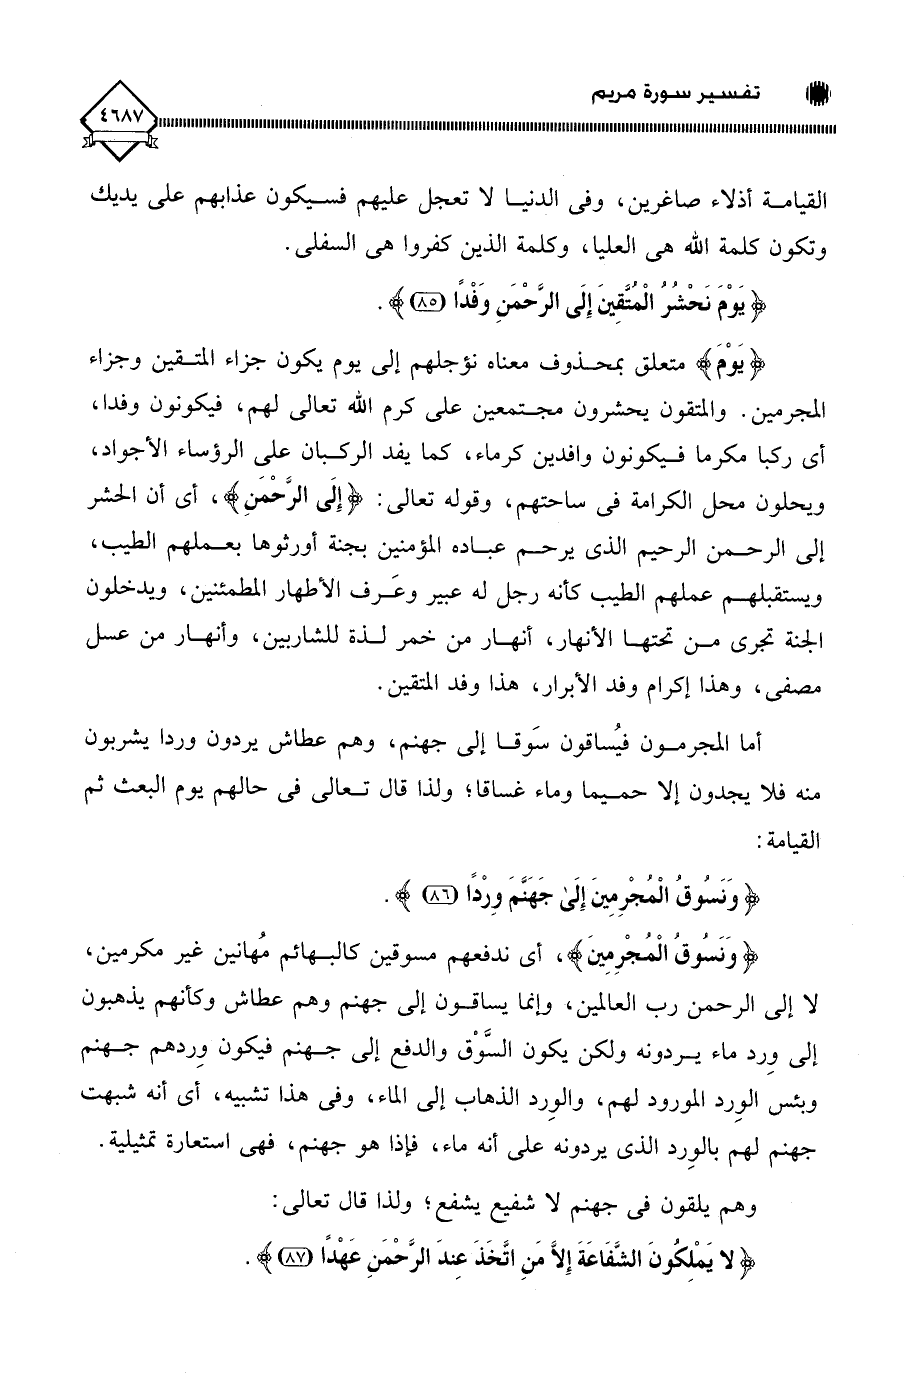 تفسير سورة مريم
٤٦٨٧
القيامة أذلاء صاغرين، وفى الدنيا لا تعجل عليهم فسيكون عذابهم على يديك
وتكون كلمة الله هى العليا، وكلمة الذين كفروا هى السفلى.
﴿ يَوْمَ نَحْشُرُ الْمُتَّقِينَ إِلَى الرَّحْمَنِ وَفْدًا (٨٥) ﴾.
﴿ يَوْمَ ﴾ متعلق بمحذوف معناه نؤجلهم إلى يوم يكون جزاء المتقين وجزاء
المجرمين. والمتقون يحشرون مجتمعين على كرم الله تعالى لهم، فيكونون وفدا،
أى ركبا مكرما فيكونون وافدين كرماء، كما يفد الركبان على الرؤساء الأجواد،
ويحلون محل الكرامة فى ساحتهم، وقوله تعالى: ﴿ إِلَى الرَّحْمَنِ ﴾، أى أن الحشر
إلى الرحمن الرحيم الذى يرحم عباده المؤمنين بجنة أورثوها بعملهم الطيب،
ويستقبلهم عملهم الطيب كأنه رجل له عبير وعَرف الأطهار المطمئنين، ويدخلون
الجنة تجرى من تحتها الأنهار، أنهار من خمر لذة للشاربين، وأنهار من عسل
مصفى، وهذا إكرام وفد الأبرار، هذا وفد المتقين.
أما المجرمون فيُساقون سَوقا إلى جهنم، وهم عطاش يردون وردا يشربون
منه فلا يجدون إلا حميما وماء غساقا؛ ولذا قال تعالى فى حالهم يوم البعث ثم
القيامة:
﴿ وَنَسُوقُ الْمُجْرِمِينَ إِلَىٰ جَهَنَّمَ وِرْدًا (٨٦) ﴾.
﴿ وَنَسُوقُ الْمُجْرِمِينَ ﴾، أى ندفعهم مسوقين كالبهائم مُهانين غير مكرمين،
لا إلى الرحمن رب العالمين، وإنما يساقون إلى جهنم وهم عطاش وكأنهم يذهبون
إلى وِرد ماء يردونه ولكن يكون السَّوْق والدفع إلى جهنم فيكون وِردهم جهنم
وبئس الوِرد المورود لهم، والوِرد الذهاب إلى الماء، وفى هذا تشبيه، أى أنه شبهت
جهنم لهم بالوِرد الذى يردونه على أنه ماء، فإذا هو جهنم، فهى استعارة تمثيلية.
وهم يلقون فى جهنم لا شفيع يشفع؛ ولذا قال تعالى:
﴿ لا يَمْلِكُونَ الشَّفَاعَةَ إِلاَّ مَنِ اتَّخَذَ عِندَ الرَّحْمَنِ عَهْدًا (٨٧) ﴾.